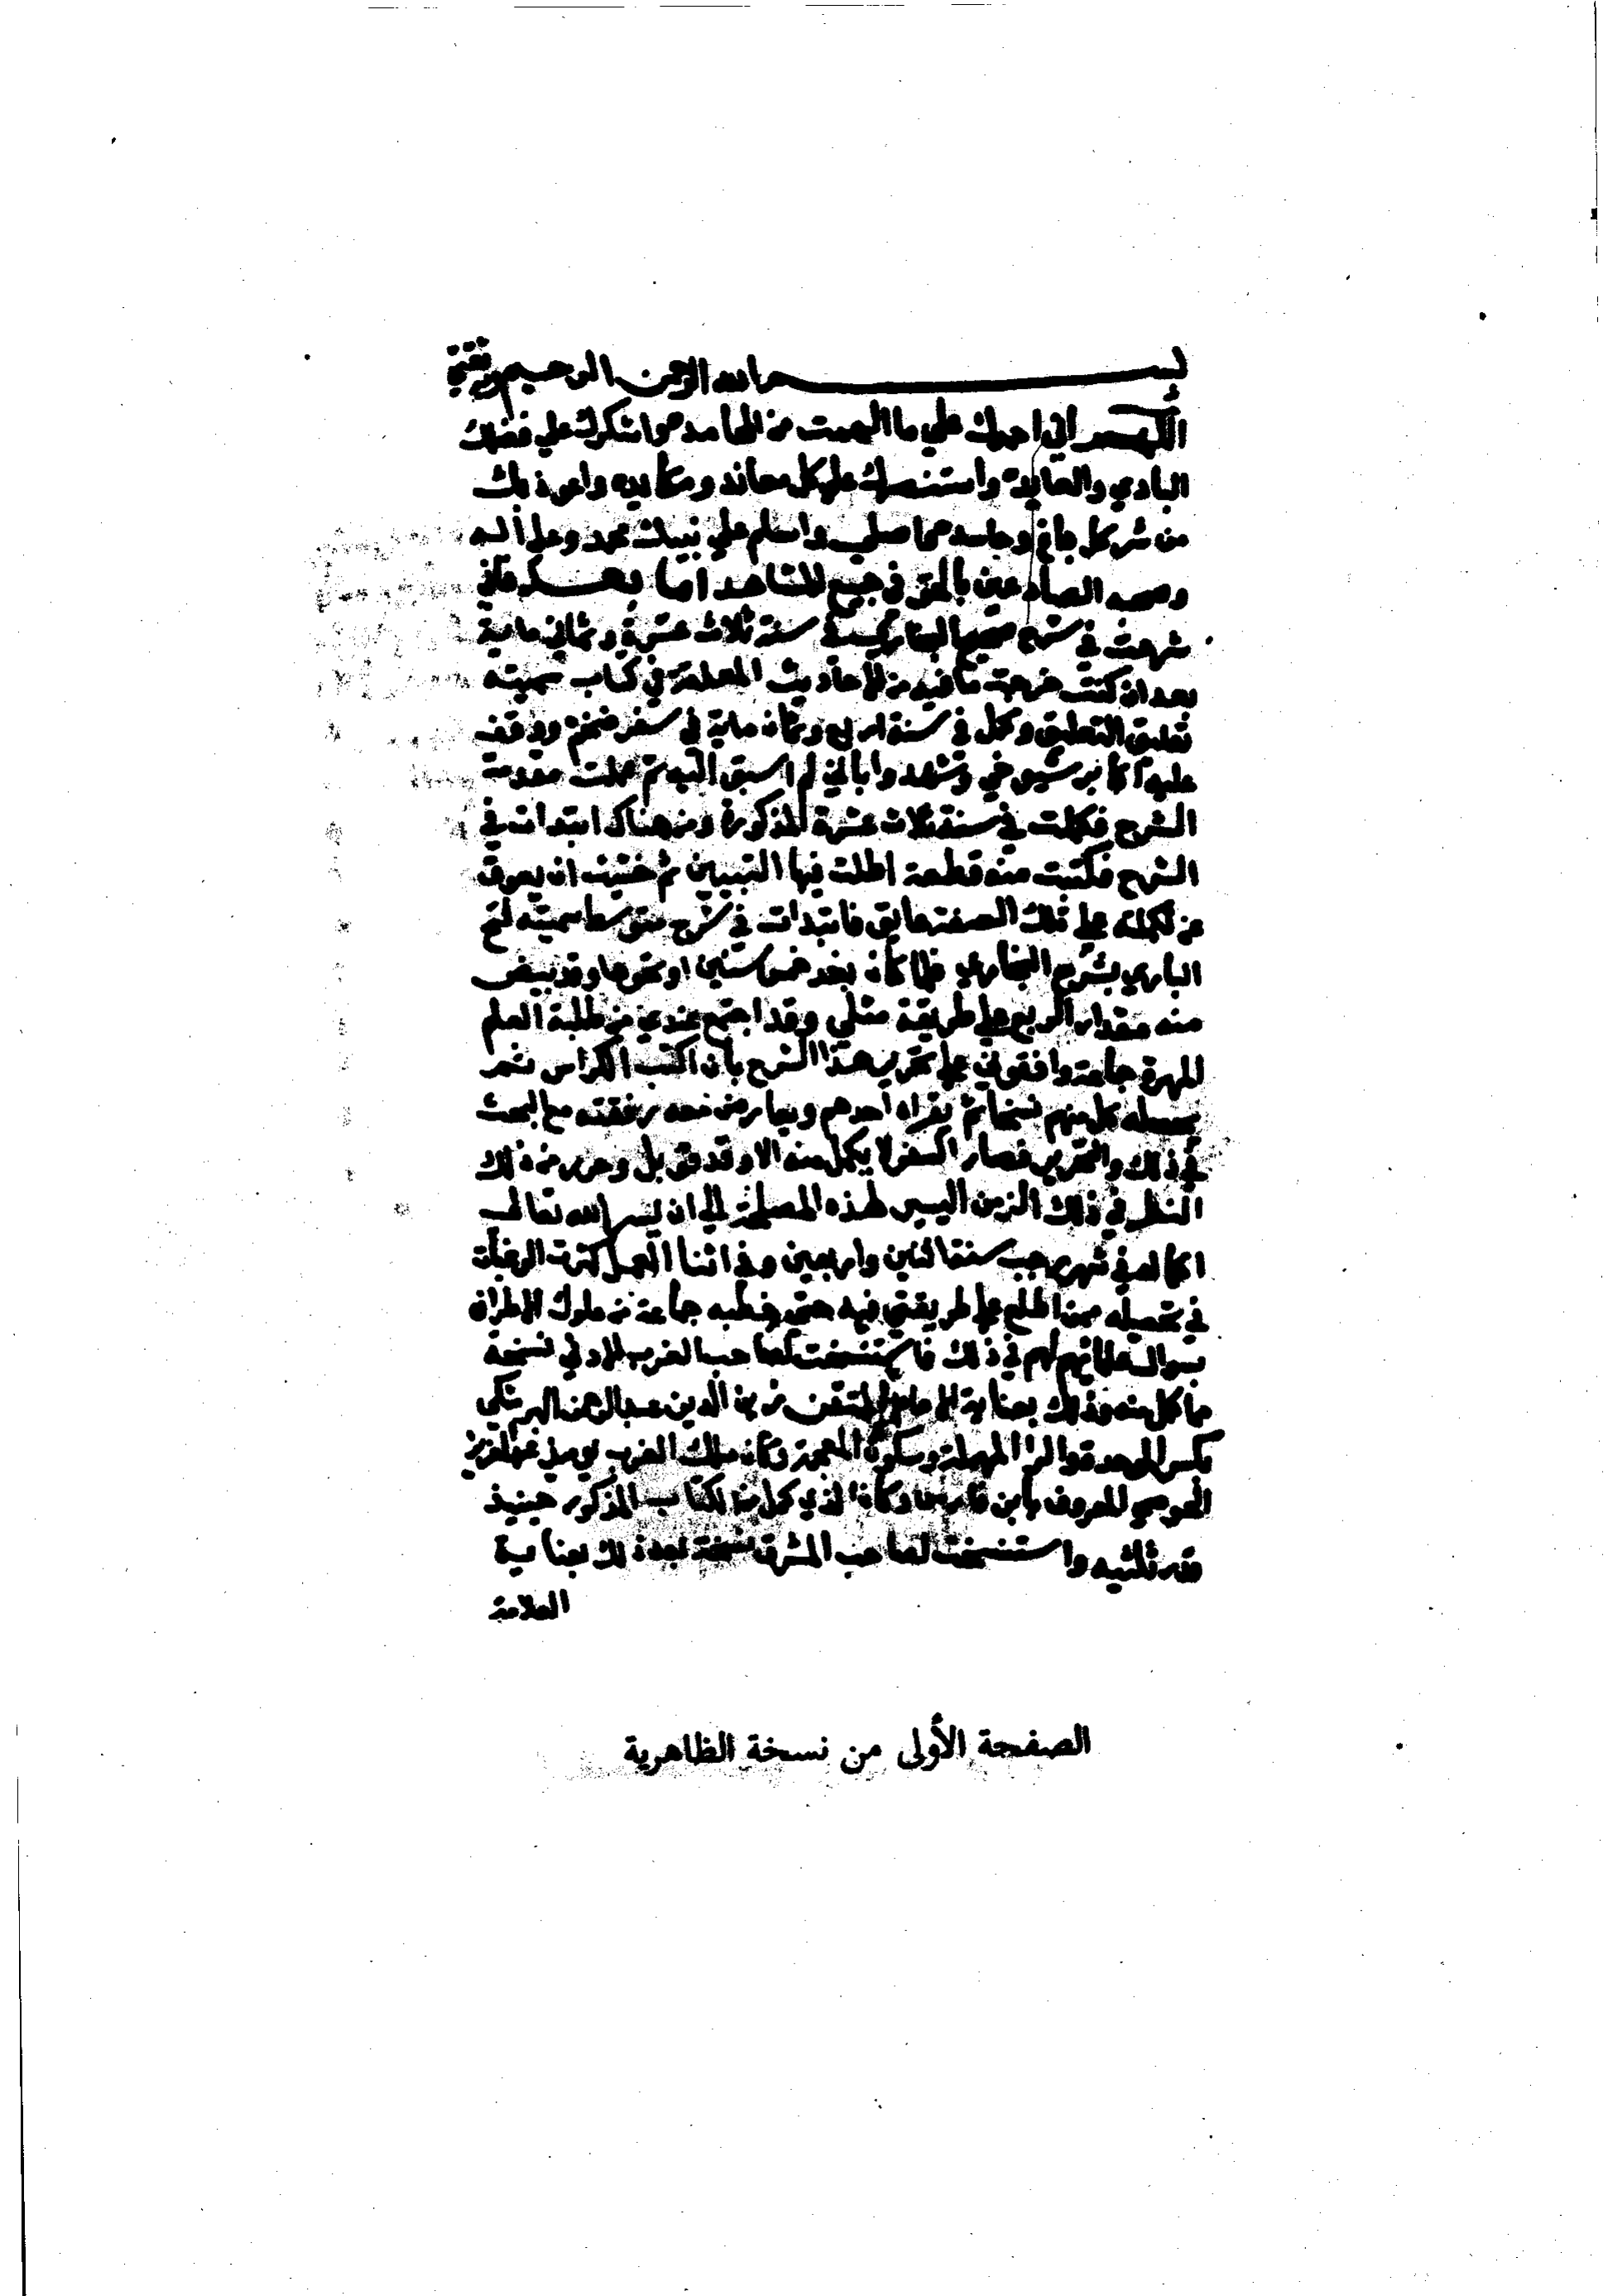 بسم الله الرحمن الرحيم وبه ثقتي
اللهم اني احمدك علي ما الهمت من المحامد واشكرك علي فضلك
البادي والعايد واستنصرك علي كل معاند ومكايد واعوذ بك
من شر كل باغ وحاسد واصلي واسلم علي نبيك محمد وعلي اله
وصحبه الصادعين بالحق في جميع المشاهد اما بعد فاني
شرعت في شرح صحيح البخاري في سنة ثلاث عشرة وثماني ماية
بعد ان كنت خرجت ما فيه من الاحاديث المعلقة في كتاب سميته
تعليق التعليق وكمل في سنة اربع وثمان ماية في سفر ضخم ووقف
عليه اكابر شيوخي وشهدوا باني لم اسبق اليه ثم عملت مقدمة
الشرح فكملت في سنة ثلاث عشرة المذكورة ومن هناك ابتدات في
الشرح فكتبت منه قطعة اطلت فيها التبيين ثم خشيت ان يعوق
عن تكملته علي تلك الصفة عايق فابتدات في شرح متوسط سميته فتح
الباري بشرح البخاري فلما كان بعد خمس سنين او نحوها وقد بيض
منه مقدار الربع علي طريقة مثلي وقد اجتمع عندي من طلبة العلم
المهرة جماعة وافقوني علي تحرير هذا الشرح بان اكتب الكراس ثم
يحصله كل منهم نسخا ثم يقراه احدهم ويعارض معه رفقته مع البحث
في ذلك والتحرير فصار السفر لا يكمل منه الا وقد قوبل وحرر من ذلك
النظر في ذلك الزمن اليسير لهذه المصلحة الي ان يسر الله تعالى
اكماله في شهر رجب سنة اثنين واربعين وفي اثنا العمل كثرت الرغبات
في تحصيله ممن اطلع علي طريقتي فيه حتى خطبه جماعة من ملوك الاطراف
بسوال علمائهم لهم في ذلك فاستنسخت لصاحب الغرب الادني نسخة
مما كمل منه وذلك بعناية الامام المتقن زين الدين عبد الرحمن البرشكي
بكسر الموحدة والرا المهملة وسكون المعجمة وكان ملك الغرب يوميذ عبد العزيز
الحوصي المعروف بابن فارس وكان الذي كمل من الكتاب المذكور حينيذ
قدر ثلثيه واستنسخت لصاحب المشرق نسخة بعد ذلك بعناية
العلامة
الصفحة الأولى من نسخة الظاهرية